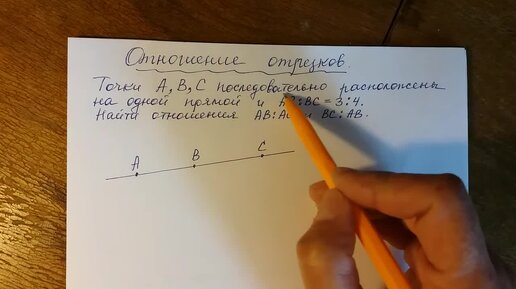 Отношение отрезков.
Точки A, B, C последовательно расположены
на одной прямой и AB:BC = 3:4.
Найти отношения AB:AC и BC:AB.
A B C